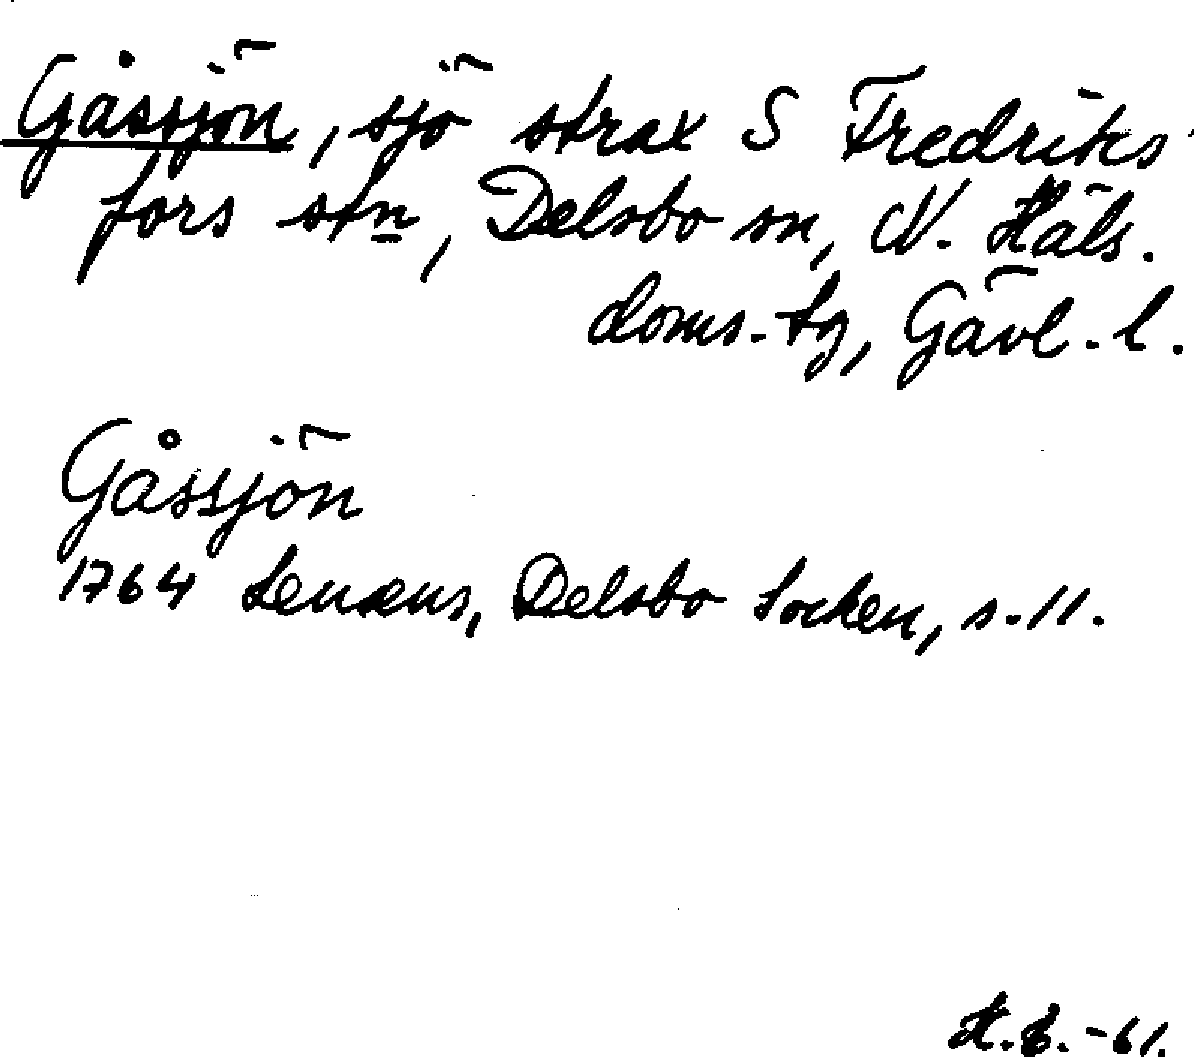 Gåssjön, sjö strax S Fredriks
fors stn, Delsbo sn, N. Häls.
doms.-tg, Gävl.-l.
Gåssjön
1764 Lenæus, Delsbo Socken, s. 11.
H.B. -61.